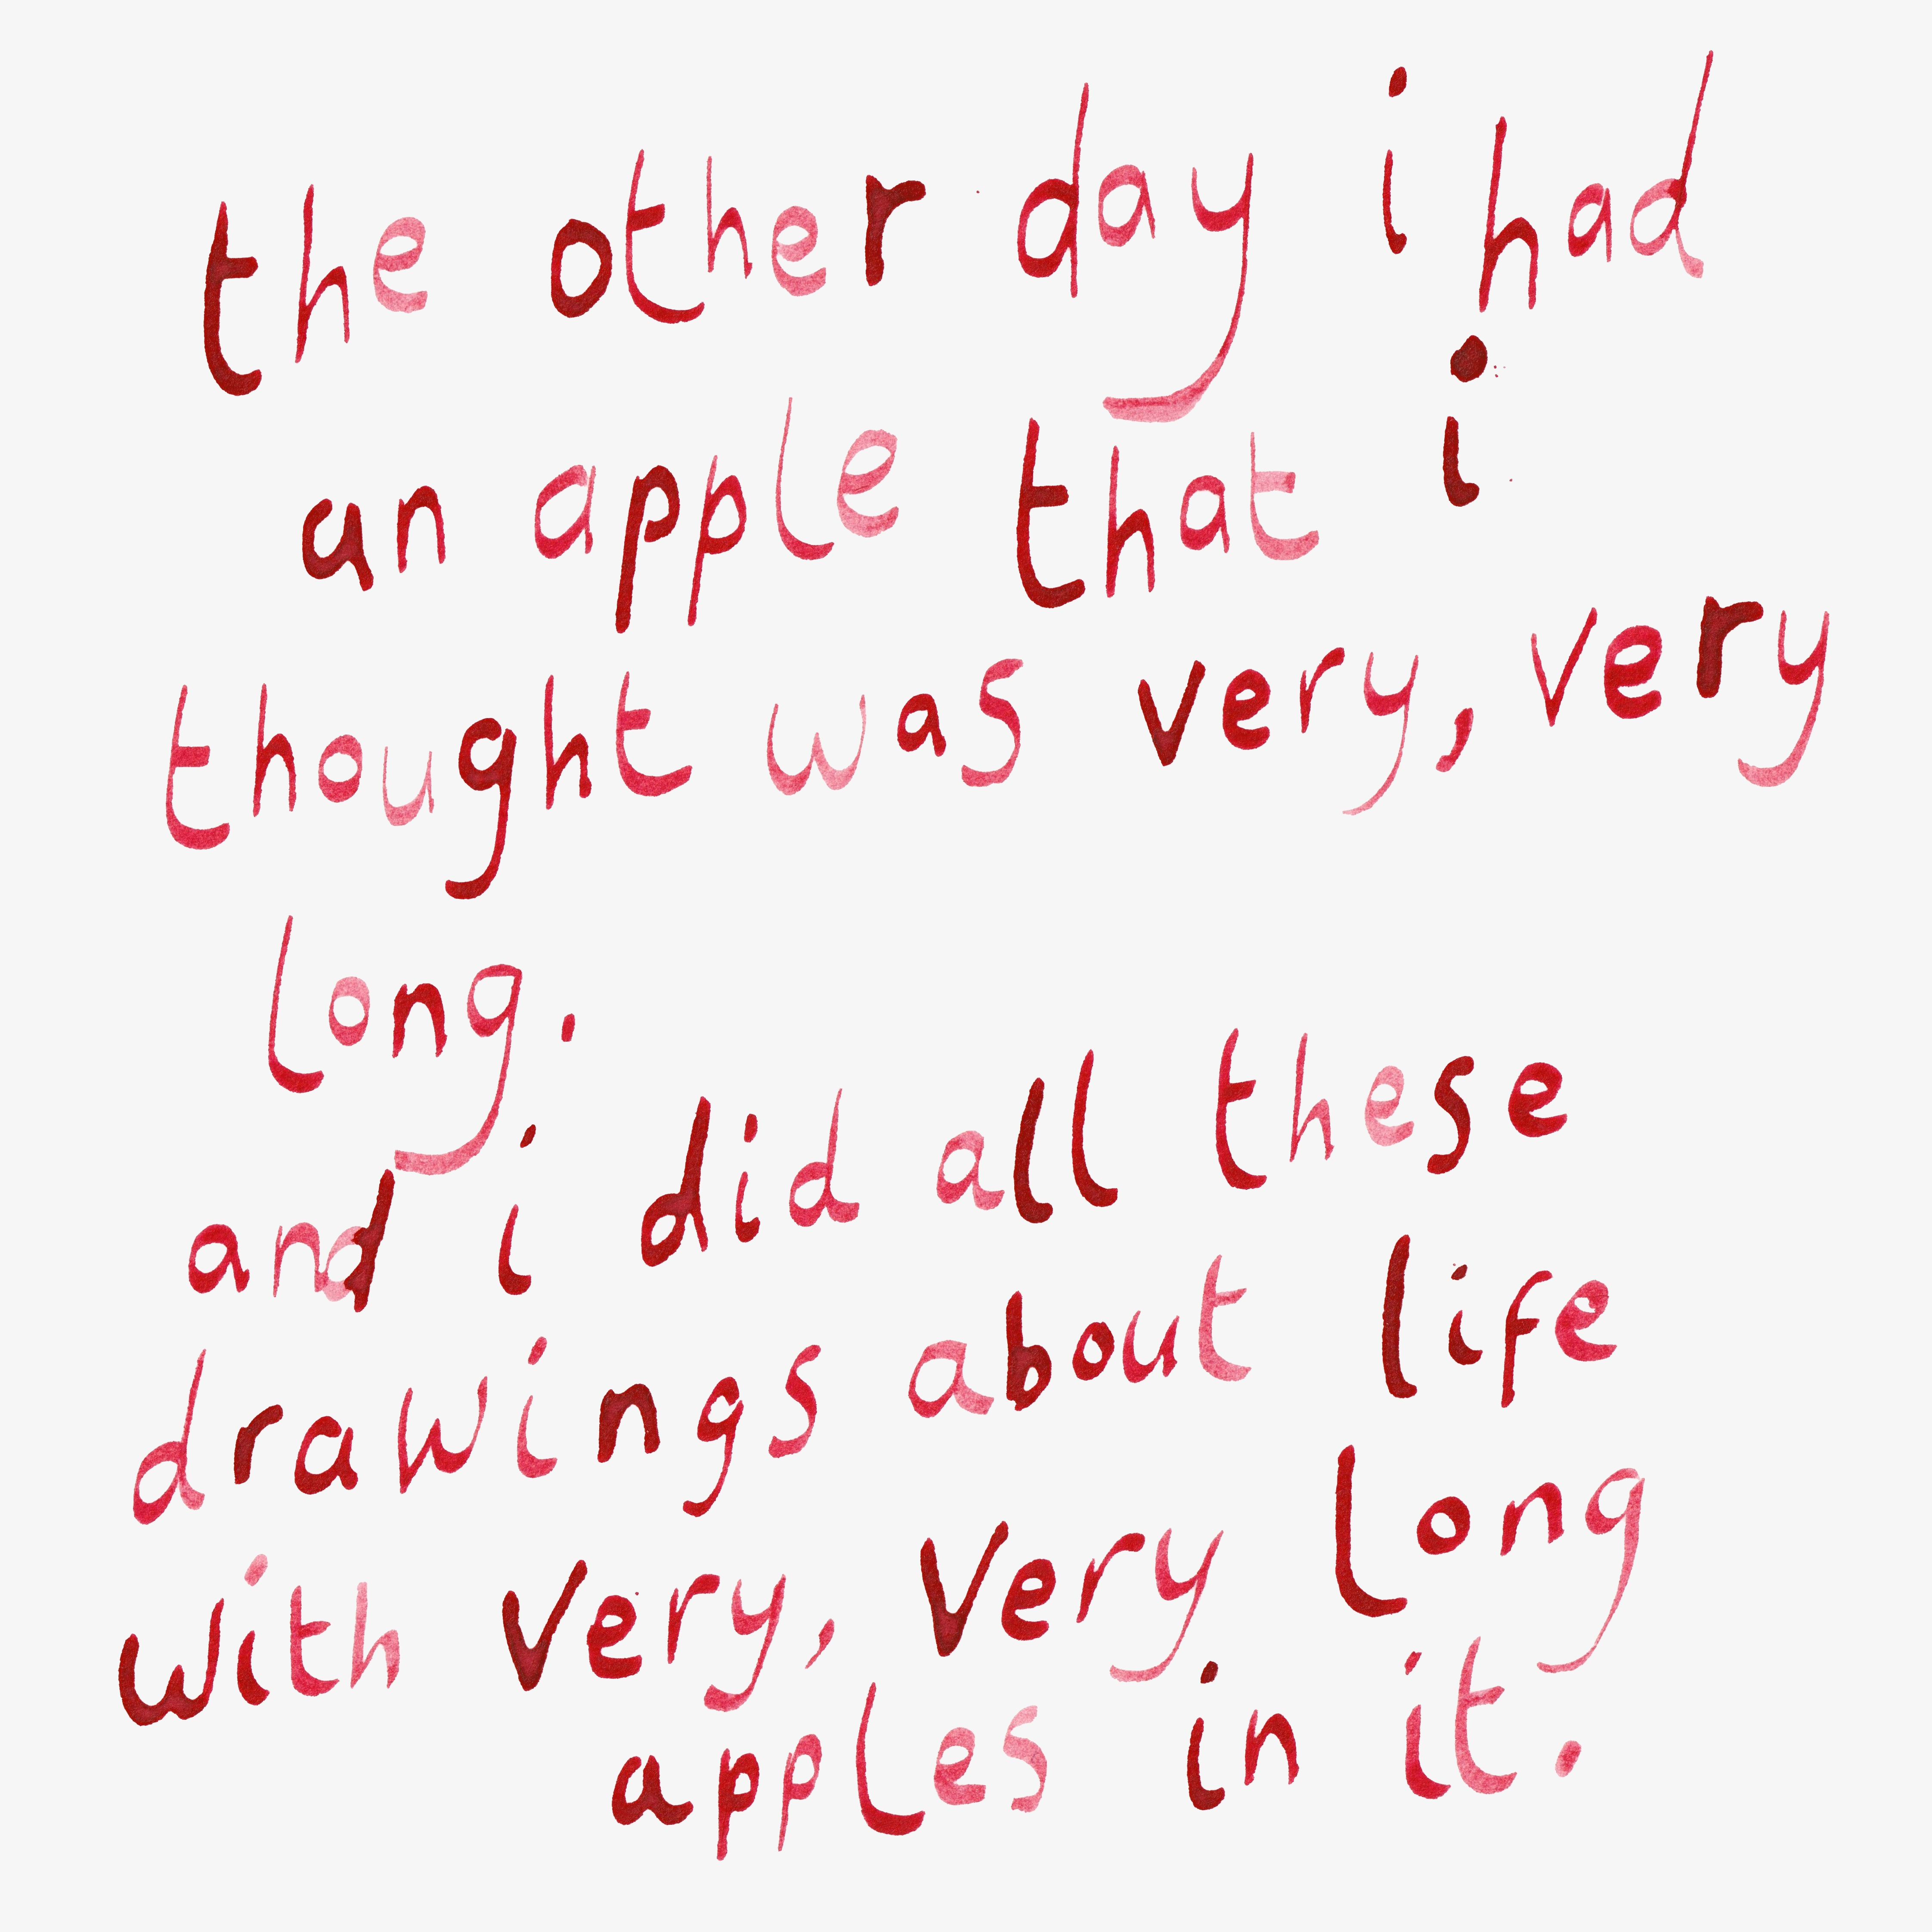 the other day i had
an apple that i
thought was very, very
long.
and i did all these
drawings about life
with very, very long
apples in it.